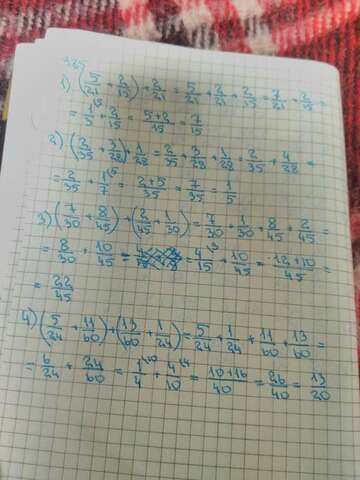 385
1) (5/21 + 2/15) + 2/21 = 5/21 + 2/21 + 2/15 = 7/21 + 2/15 =
= 1/3 + 2/15 = (5+2)/15 = 7/15
2) (2/35 + 3/28) + 1/28 = 2/35 + 3/28 + 1/28 = 2/35 + 4/28 =
= 2/35 + 1/7 = (2+5)/35 = 7/35 = 1/5
3) (7/30 + 8/45) + (2/45 + 1/30) = 7/30 + 1/30 + 8/45 + 2/45 =
= 8/30 + 10/45 = 4/15 + 10/45 = (12+10)/45 =
= 22/45
4) (5/24 + 11/60) + (13/60 + 1/24) = 5/24 + 1/24 + 11/60 + 13/60 =
= 6/24 + 24/60 = 1/4 + 4/10 = (10+16)/40 = 26/40 = 13/20